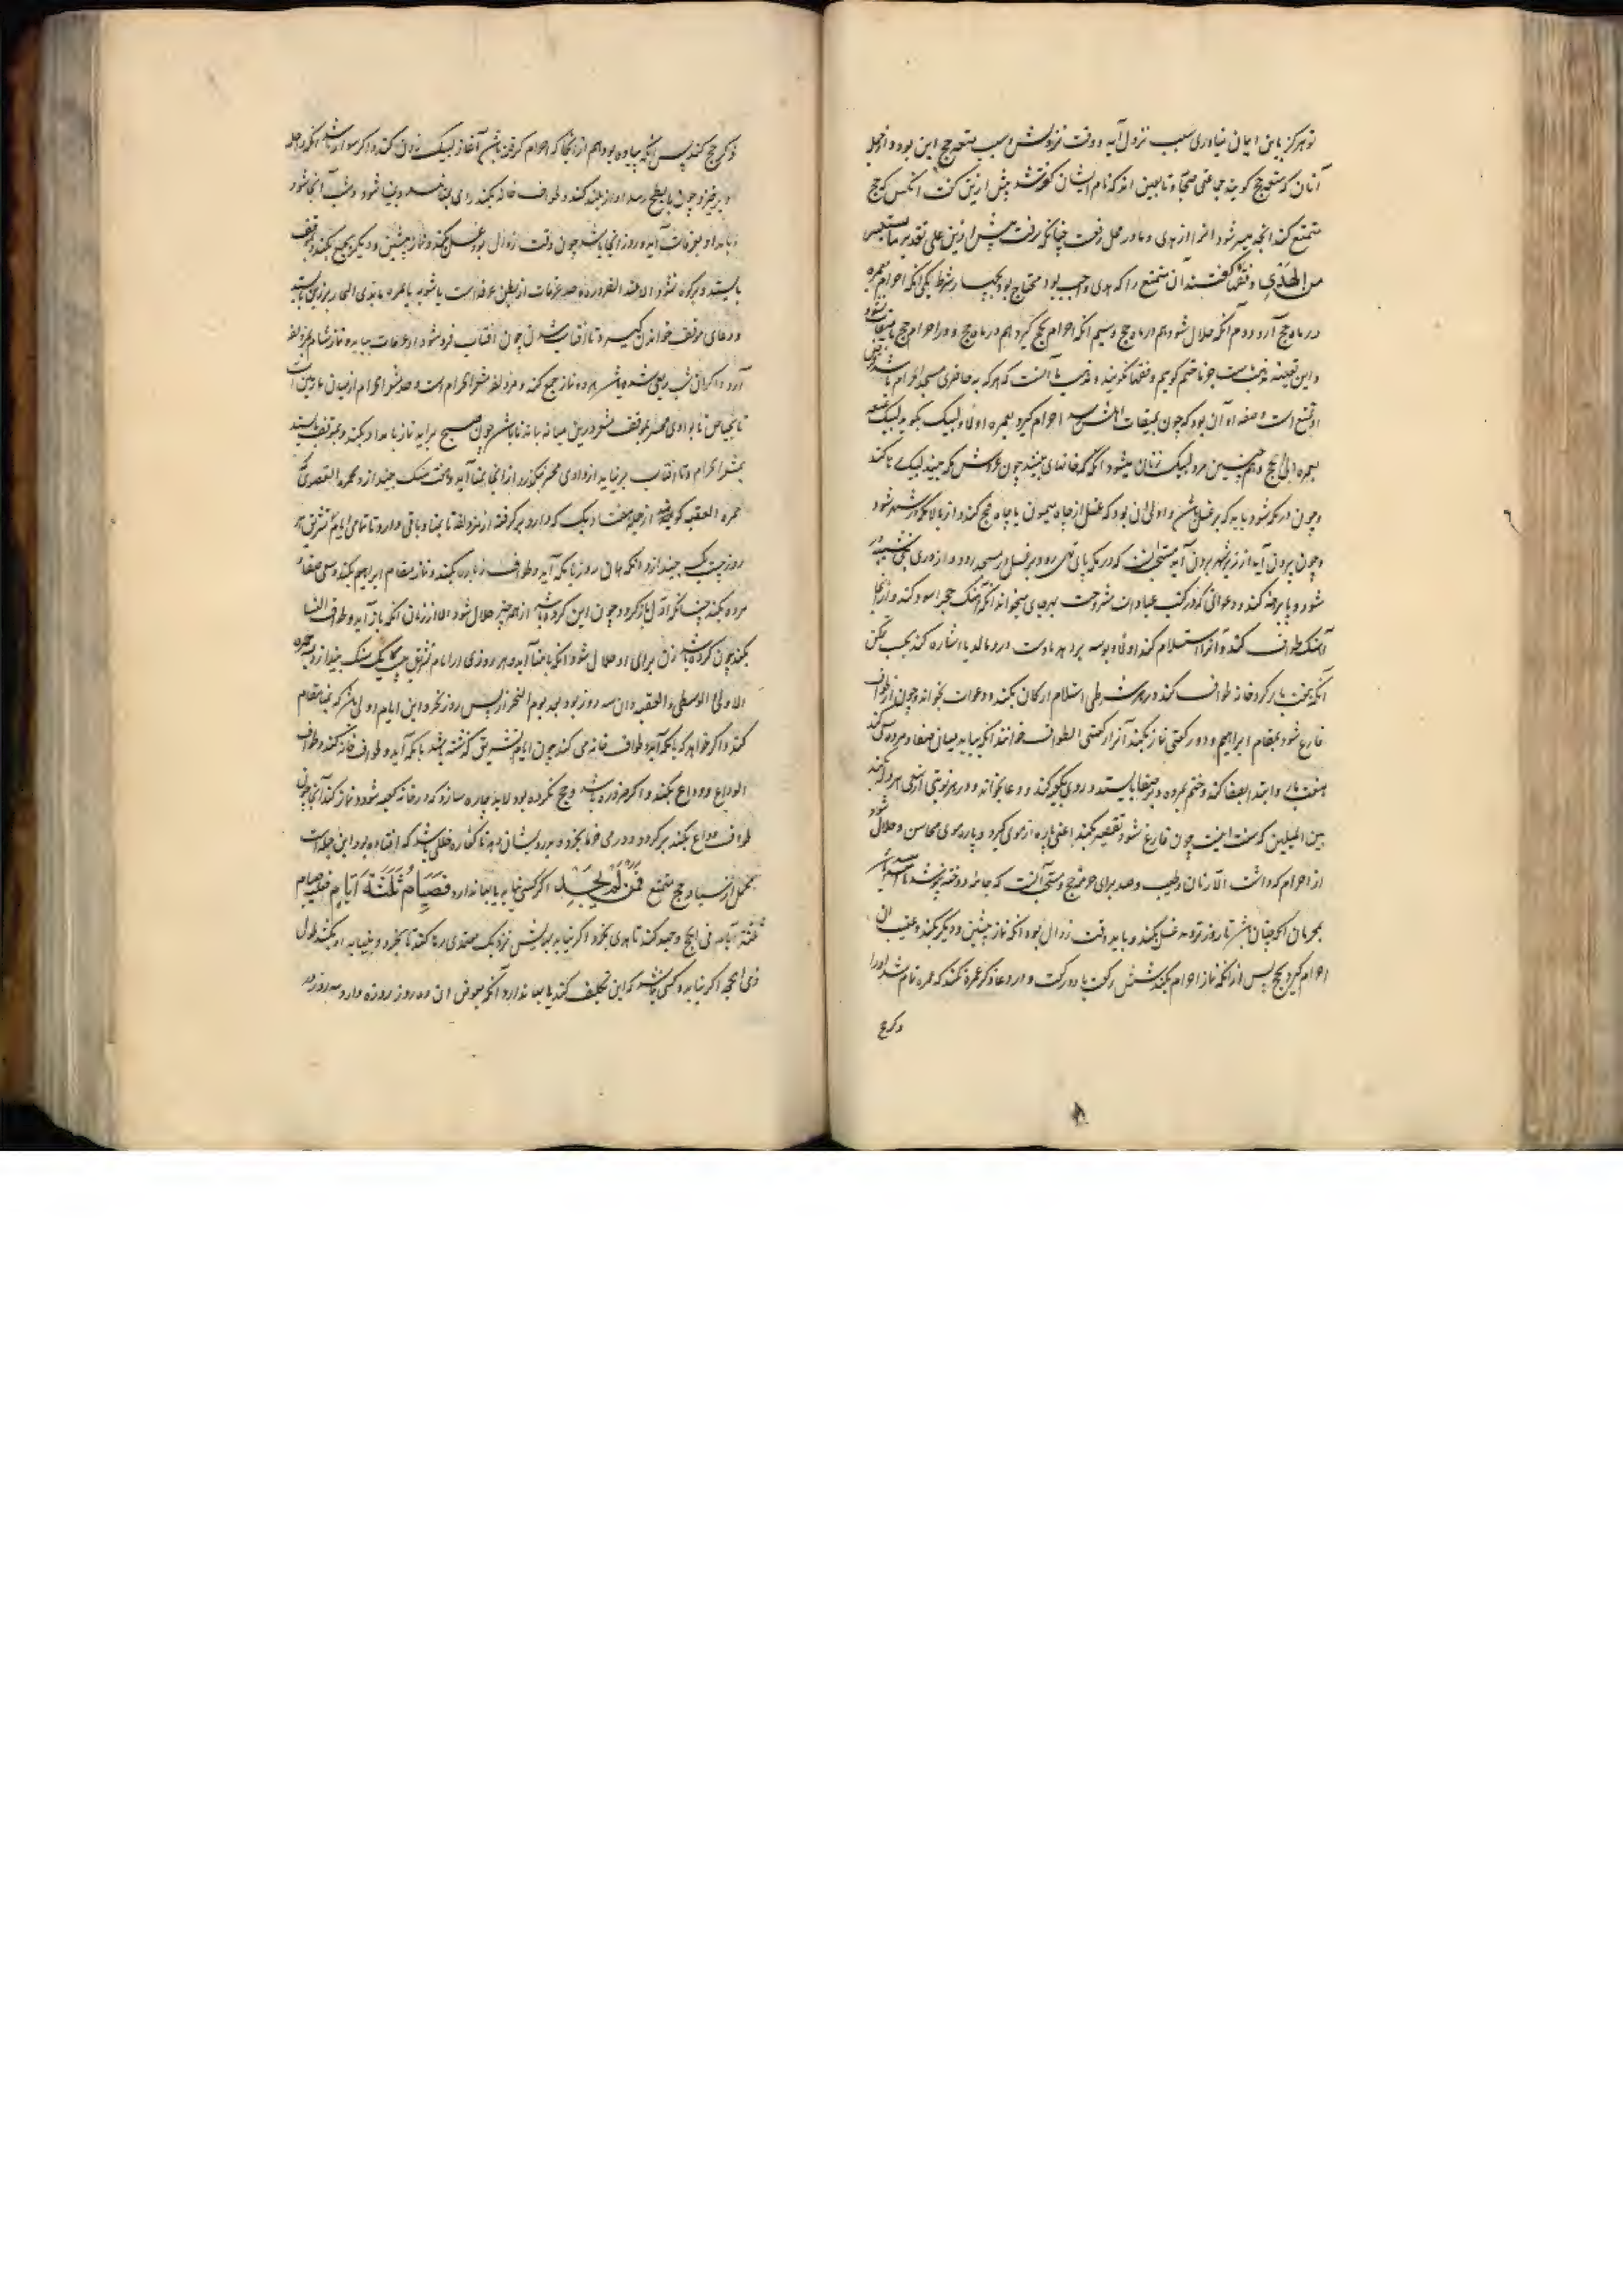 تو هرگز باین ایمان نیاوری سبب نزول آیه و وقت نزولش و سبب متعه حج این بود و از جمله
آنان که متعه حج گویند جماعتی صحابه و تابعین اند که نام ایشان گفته شد پیش ازین گفت آنکس که حج
تمتع کند آنچه میسر شود او را از هدی و ما در محل رفعست چنانکه رفت پیش ازین علی تقدیر ما استیسر
من الهدی و فقها گفتند آن متمتع را که هدی واجب بود محتاج بود بچهار شرط یکی آنکه احرام بعمره
در ماه حج آرد دوم آنکه حلال شود هم در ماه حج و سیم آنکه احرام بحج گیرد هم در ماه حج و در احرام حج با میقات نشود
و این فقها گویند و مذهب ما آنست که هر که نه حاضری مسجد الحرام باشد فرض
او تمتع است و صفه او آن بود که چون بمیقات اهلش رسد احرام گیرد بعمره اولا و لبیک بگوید لبیک بمتعه
بعمره الی الحج و همچنین مرد لبیک زنان میشود آنگه که خانهای مکه بیند چون عروش مکه بیند لبیک رها کند
و چون در مکه شود باید که بر غسل باشد و اولی آن بود که غسل از چاه میمون یا چاه فخ کند و از بالا مکه در شهر شود
و چون بیرون آید از زیر شهر بیرون آید مستحب آنست که در مکه پای تهی رود و بر غسل در مسجد رود و از در بنی شیبه در
شود و پا برهنه کند و دعوائی که در کتب عبادات مشروحست بهر جای میخواند آنگه آهنگ حجر اسود کند و از آنجا
آهنگ طواف کند و آنرا استلام کند اولا و بوسه برد بهر دو دست در و مالد یا اشاره کند بحسب تمکن
آنگه هفت بار گرد خانه طواف کند و در هر شوطی استلام ارکان بکند و دعوات بخواند و چون از طواف
فارغ شود بمقام ابراهیم و دو رکعتی نماز بکند آنرا رکعتی الطواف خوانند آنگه بیاید میان صفا و مروه سعی کند
هفت بار و ابتدا بصفا کند و ختم بمروه و بر صفا بایستد و روی بکعبه کند و دعا بخواند و در هر نوبتی از سعی هروله کند
بین المیلین که سنت اینست چون فارغ شود تقصیر بکند اعنی پاره از موی گیرد و پاره موی محاسن و حلال شود
از احرام که داشت الا زنان و طیب و صید برای حرم و حج و مستحب آنست که جامه دوخته نپوشد تا ماننده باشد
بمحرمان آنگه چنان باشد تا روز ترویه غسل بکند و باید وقت زوال بود آنگه نماز پیشین و دیگر بکند و عقیب آن
احرام گیرد بحج پس از آنکه نماز احرام بکند شش رکعت یا دو رکعت و در دعا ذکر عمره نکند که عمره تمام شد او را
ذکر حج
ذکر حج کند پس آنگه پیاده بود هم از آنجا که احرام گرفته باشد آغاز لبیک زدن بکند و اگر سوار باشد آنگه راحله
او برخیزد و چون بابطح رسد آواز بلند کند و طواف خانه نکند و روی بمنا نهد و بمنا شود و شب آنجا شود
و بامداد بعرفات آید و روز آنجا باشد چون وقت زوال بود غسل بکند و نماز پیشین و دیگر بجمع بکند و بموقف
بایستد و بر کوه نشود الا عند الضرورة و حد عرفات از بطن عرنه است
و دعای موقف خواندن گیرد تا آفتاب شدن چون آفتاب فرو شود از عرفات بیاید و نماز شام بمزدلفه
آرد و اگر از شب ربعی شده باشد هر دو نماز جمع کند و مزدلفه مشعر الحرام است و حد مشعر الحرام از میان مازمین است
تا بحیاض تا بوادی محسر بموقف مشعر در شب میانه بماند تا باشد چون صبح برآید نماز بامداد بکند و بموقف بایستد
بمشعر الحرام و تا آفتاب برنیاید از وادی محسر نگذرد از آنجا بمنا آید و هفت سنگ بیندازد و بجمره القصوی که
جمره العقبه گویند از جمله هفتاد سنگ که دارد برگرفته از مزدلفه تا بمنا و باقی دارد تا تمامی ایام تشریق هر
روز بیست و یک بیندازد و آنگه همان روز تا مکه آید و طواف زیارت بکند و نماز بمقام ابراهیم بکند و سعی صفا و
مروه بکند چنانکه اول باز کرد و چون این کرده باشد از همه چیز حلال شود الا از زنان آنگه باز آید و طواف النسا
بکند چون کرده باشد زن برای او حلال شود آنگه با منا آید و هر روزی در ایام تشریق بیست و یک سنگ بیندازد بسه جمره
الاولی والوسطی والعقبه و آن سه روز بود بعد یوم النحر از پس روز نحر و این ایام اولی آن که بمنا مقام
کند و اگر خواهد که با مکه آید و طواف خانه می کند چون ایام تشریق گذشته باشد با مکه آید و طواف خانه کند و طواف
الوداع و وداع بکند و اگر صروره باشد و حج نکرده بود لابد چاره سازد که در خانه کعبه شود و نماز کند آنجا چون
طواف وداع بکند برگردد و درمی خرما بخرد و بدرویشان دهد تا کفاره خللی باشد که افتاده بود این جمله است
مجمل از سیاقه حج متمتع فَمَن لَّمْ يَجِدْ اگر کسی نیابد یا بها ندارد فَصِيَامُ ثَلَثَةِ أَيَّامٍ فعلیه صیام
ثلثة ایام فی الحج و جهد کند تا هدی بخرد اگر نیابد بهایش نزدیک معتمدی رها کند تا بخرد و بنیابه او بکشد طول
ذی الحجه اگر نیابد و کسی نباشد که این تکلیف کند یا بها ندارد آنگه بعوض آن ده روز روزه دارد سه روز در